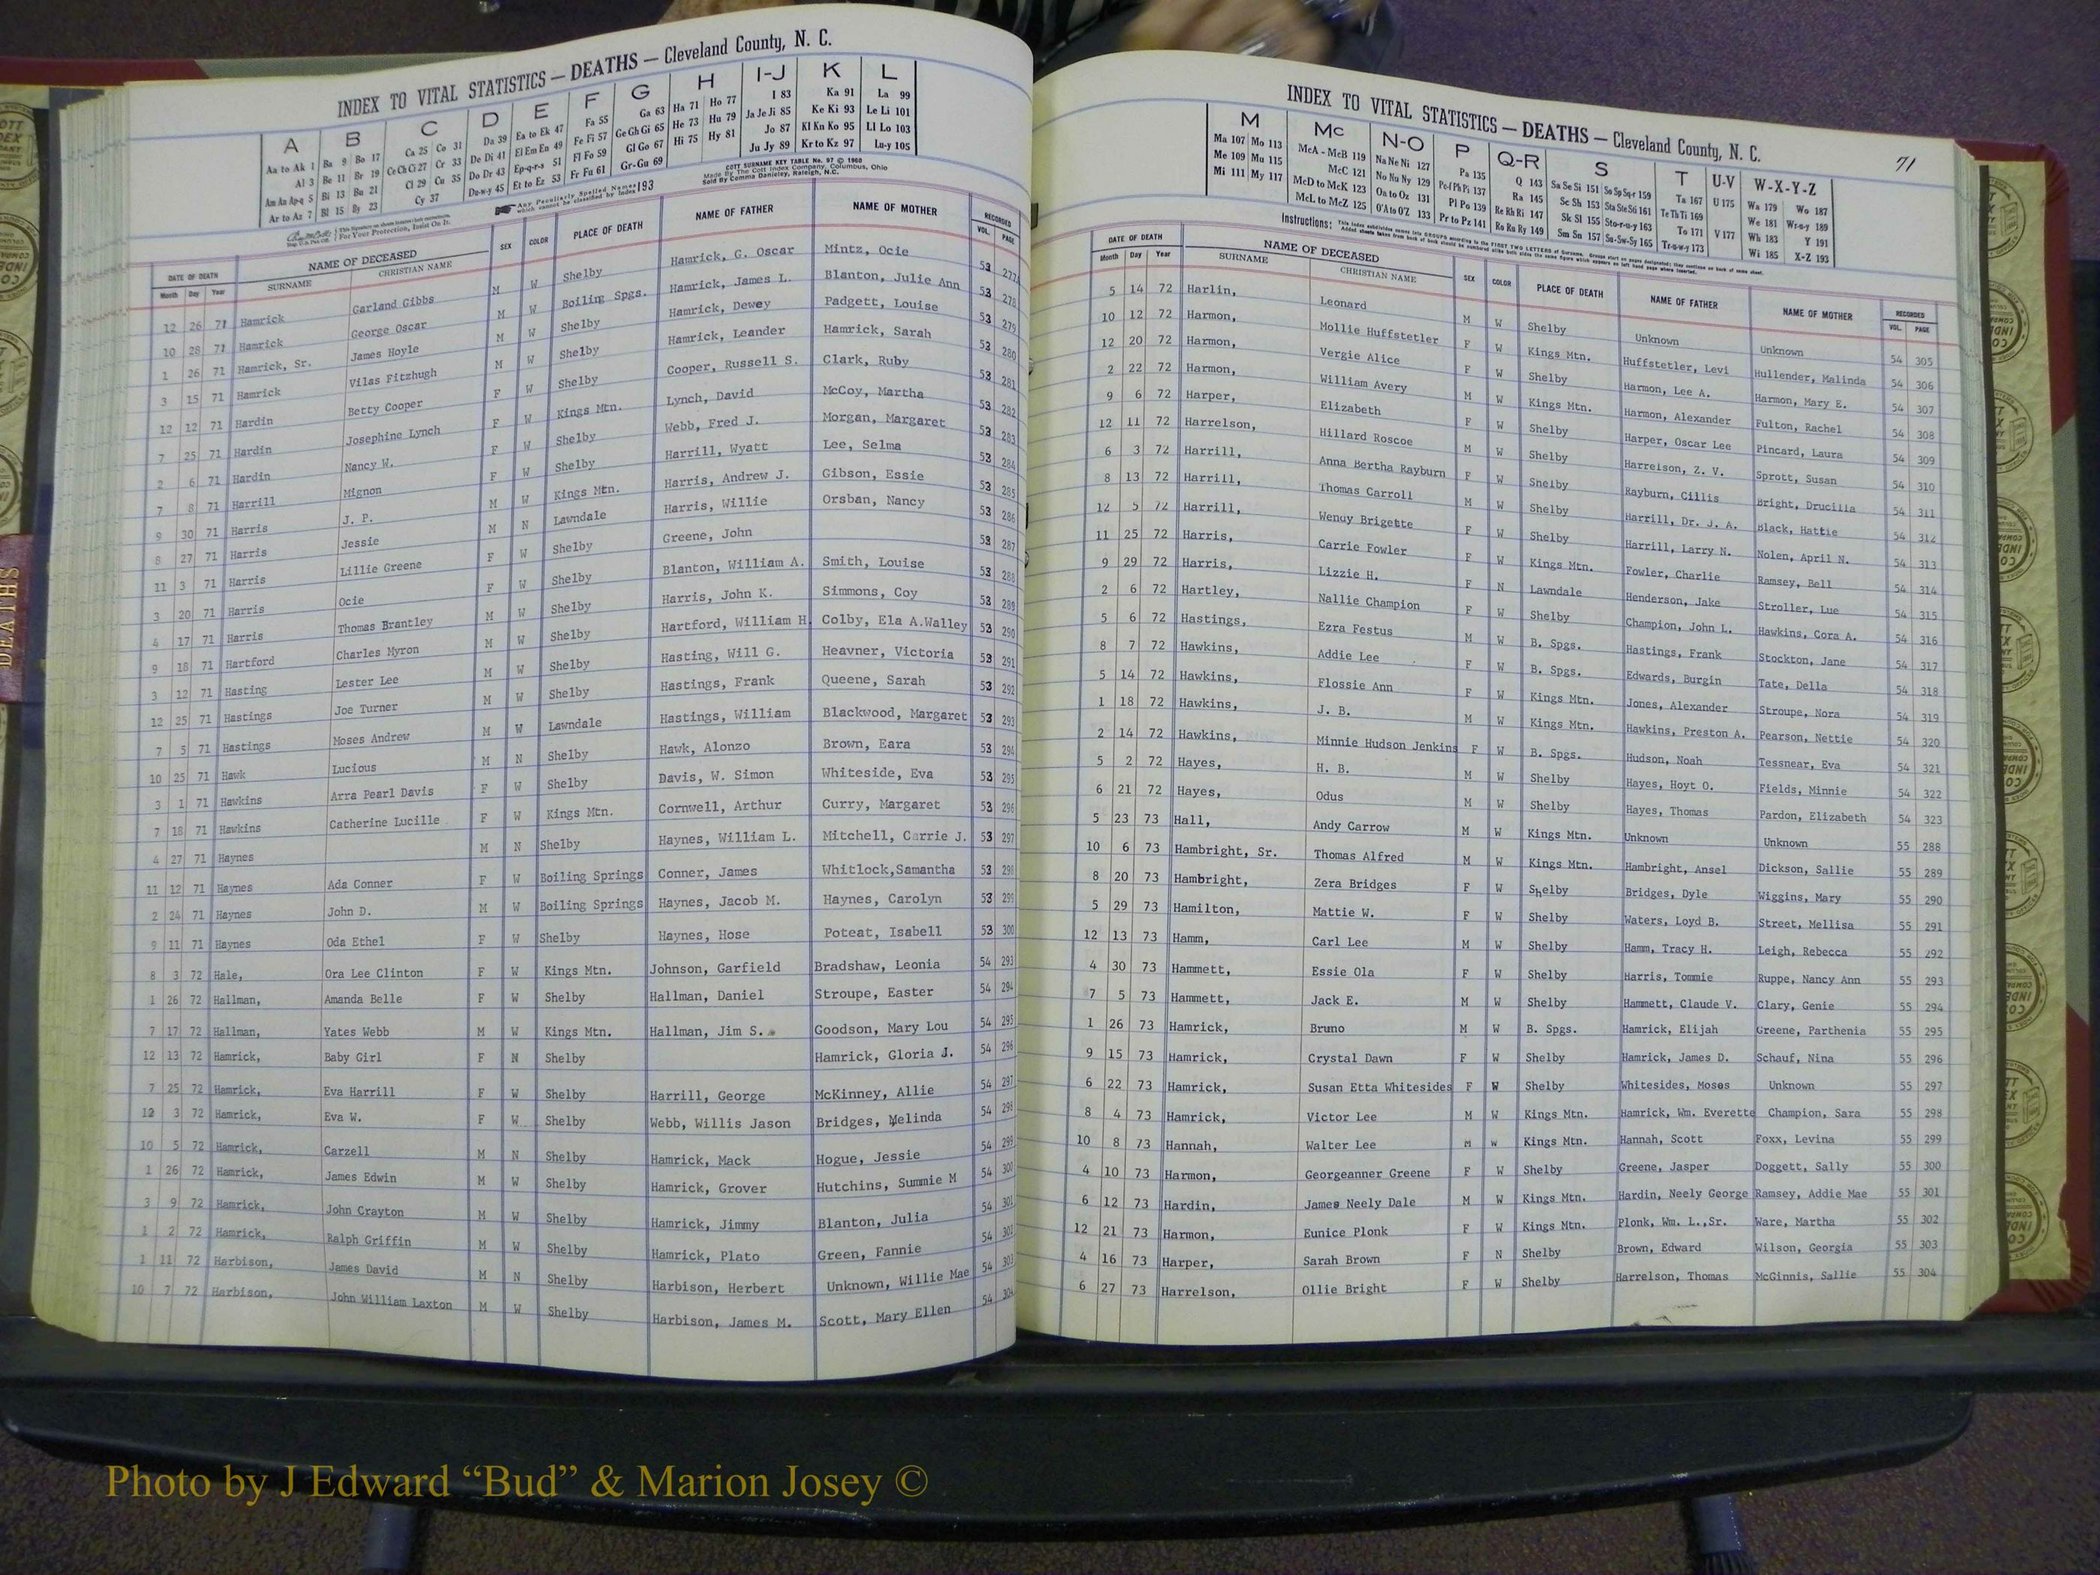 INDEX TO VITAL STATISTICS — DEATHS — Cleveland County, N. C.
A B C D E F G H I-J K L
Aa to Ak 1 Ba 9 Bo 17 Ca 25 Co 31 Da 39 Ea to Ek 47 Fa 55 Ga 63 Ha 71 Ho 77 I 83 Ka 91 La 99
Al 3 Be 11 Br 19 Ce Ch Ci 27 Cr 33 De Di 41 El Em En 49 Fe Fi 57 Ge Gh Gi 65 He 73 Hu 79 Ja Je Ji 85 Ke Ki 93 Le Li 101
Am An Ap-q 5 Bi 13 Bu 21 Cl 29 Cu 35 Do Dr 43 Ep-q-r-s 51 Fl Fo 59 Gl Go 67 Hi 75 Hy 81 Jo 87 Kl Kn Ko 95 Ll Lo 103
Ar to Az 7 Bl 15 By 23 Cy 37 Du-w-y 45 Et to Ez 53 Fr Fu 61 Gr-Gu 69 Ju Jy 89 Kr to Kz 97 Lu-y 105
COTT SURNAME KEY TABLE No. 97 © 1960
Made By The Cott Index Company, Columbus, Ohio
Sold By Comma Danieley, Raleigh, N.C.
Any Peculiarly Spelled Names which cannot be classified by Index 193
For Your Protection, Insist On It.
DATE OF DEATH NAME OF DECEASED SEX COLOR PLACE OF DEATH NAME OF FATHER NAME OF MOTHER RECORDED
Month Day Year SURNAME CHRISTIAN NAME VOL. PAGE
12 26 71 Hamrick Garland Gibbs M W Shelby Hamrick, G. Oscar Mintz, Ocie 53 277A
10 28 71 Hamrick George Oscar M W Boiling Spgs. Hamrick, James L. Blanton, Julie Ann 53 278
1 26 71 Hamrick, Sr. James Hoyle M W Shelby Hamrick, Dewey Padgett, Louise 53 279
3 15 71 Hamrick Vilas Fitzhugh M W Shelby Hamrick, Leander Hamrick, Sarah 53 280
12 12 71 Hardin Betty Cooper F W Shelby Cooper, Russell S. Clark, Ruby 53 281
7 25 71 Hardin Josephine Lynch F W Kings Mtn. Lynch, David McCoy, Martha 53 282
2 6 71 Hardin Nancy W. F W Shelby Webb, Fred J. Morgan, Margaret 53 283
7 8 71 Harrill Mignon F W Shelby Harrill, Wyatt Lee, Selma 53 284
9 30 71 Harris J. P. M W Kings Mtn. Harris, Andrew J. Gibson, Essie 53 285
8 27 71 Harris Jessie M N Lawndale Harris, Willie Orsban, Nancy 53 286
11 3 71 Harris Lillie Greene F W Shelby Greene, John 53 287
3 20 71 Harris Ocie F W Shelby Blanton, William A. Smith, Louise 53 288
4 17 71 Harris Thomas Brantley M W Shelby Harris, John K. Simmons, Coy 53 289
9 18 71 Hartford Charles Myron M W Shelby Hartford, William H. Colby, Ela A.Walley 53 290
3 12 71 Hasting Lester Lee M W Shelby Hasting, Will G. Heavner, Victoria 53 291
12 25 71 Hastings Joe Turner M W Shelby Hastings, Frank Queene, Sarah 53 292
7 5 71 Hastings Moses Andrew M W Lawndale Hastings, William Blackwood, Margaret 53 293
10 25 71 Hawk Lucious M N Shelby Hawk, Alonzo Brown, Eara 53 294
3 1 71 Hawkins Arra Pearl Davis F W Shelby Davis, W. Simon Whiteside, Eva 53 295
7 18 71 Hawkins Catherine Lucille F W Kings Mtn. Cornwell, Arthur Curry, Margaret 53 296
4 27 71 Haynes M N Shelby Haynes, William L. Mitchell, Carrie J. 53 297
11 12 71 Haynes Ada Conner F W Boiling Springs Conner, James Whitlock,Samantha 53 298
2 24 71 Haynes John D. M W Boiling Springs Haynes, Jacob M. Haynes, Carolyn 53 299
9 11 71 Haynes Oda Ethel F W Shelby Haynes, Hose Poteat, Isabell 53 300
8 3 72 Hale, Ora Lee Clinton F W Kings Mtn. Johnson, Garfield Bradshaw, Leonia 54 293
1 26 72 Hallman, Amanda Belle F W Shelby Hallman, Daniel Stroupe, Easter 54 294
7 17 72 Hallman, Yates Webb M W Kings Mtn. Hallman, Jim S. Goodson, Mary Lou 54 295
12 13 72 Hamrick, Baby Girl F N Shelby Hamrick, Gloria J. 54 296
7 25 72 Hamrick, Eva Harrill F W Shelby Harrill, George McKinney, Allie 54 297
12 3 72 Hamrick, Eva W. F W Shelby Webb, Willis Jason Bridges, Melinda 54 298
10 5 72 Hamrick, Carzell M N Shelby Hamrick, Mack Hogue, Jessie 54 299
1 26 72 Hamrick, James Edwin M W Shelby Hamrick, Grover Hutchins, Summie M 54 300
3 9 72 Hamrick, John Crayton M W Shelby Hamrick, Jimmy Blanton, Julia 54 301
1 2 72 Hamrick, Ralph Griffin M W Shelby Hamrick, Plato Green, Fannie 54 302
1 11 72 Harbison, James David M N Shelby Harbison, Herbert Unknown, Willie Mae 54 303
10 7 72 Harbison, John William Laxton M W Shelby Harbison, James M. Scott, Mary Ellen 54 304
71
INDEX TO VITAL STATISTICS — DEATHS — Cleveland County, N. C.
M Mc N-O P Q-R S T U-V W-X-Y-Z
Ma 107 Mo 113 McA - McB 119 Na Ne Ni 127 Pa 135 Q 143 Sa Se Si 151 So Sp Sq-r 159 Ta 167 U 175 Wa 179 Wo 187
Me 109 Mu 115 McC 121 No Nu Ny 129 Pe-f Ph Pi 137 Ra 145 Sc Sh 153 Sta Ste Sti 161 Te Th Ti 169 V 177 We 181 Wr-u-y 189
Mi 111 My 117 McD to McK 123 Oa to Oz 131 Pl Po 139 Re Rh Ri 147 Sk Sl 155 Sto-r-u-y 163 To 171 Wh 183 Y 191
McL to McZ 125 O'A to O'Z 133 Pr to Pz 141 Ro Ru Ry 149 Sm Sn 157 Su-Sw-Sy 165 Tr-u-w-y 173 Wi 185 X-Z 193
Instructions:
DATE OF DEATH NAME OF DECEASED SEX COLOR PLACE OF DEATH NAME OF FATHER NAME OF MOTHER RECORDED
Month Day Year SURNAME CHRISTIAN NAME VOL. PAGE
5 14 72 Harlin, Leonard M W Shelby Unknown Unknown 54 305
10 12 72 Harmon, Mollie Huffstetler F W Kings Mtn. Huffstetler, Levi Hullender, Malinda 54 306
12 20 72 Harmon, Vergie Alice F W Shelby Harmon, Lee A. Harmon, Mary E. 54 307
2 22 72 Harmon, William Avery M W Kings Mtn. Harmon, Alexander Fulton, Rachel 54 308
9 6 72 Harper, Elizabeth F W Shelby Harper, Oscar Lee Pincard, Laura 54 309
12 11 72 Harrelson, Hillard Roscoe M W Shelby Harrelson, Z. V. Sprott, Susan 54 310
6 3 72 Harrill, Anna Bertha Rayburn F W Shelby Rayburn, Cillis Bright, Drucilla 54 311
8 13 72 Harrill, Thomas Carroll M W Shelby Harrill, Dr. J. A. Black, Hattie 54 312
12 5 72 Harrill, Wendy Brigette F W Shelby Harrill, Larry N. Nolen, April N. 54 313
11 25 72 Harris, Carrie Fowler F W Kings Mtn. Fowler, Charlie Ramsey, Bell 54 314
9 29 72 Harris, Lizzie H. F N Lawndale Henderson, Jake Stroller, Lue 54 315
2 6 72 Hartley, Nallie Champion F W Shelby Champion, John L. Hawkins, Cora A. 54 316
5 6 72 Hastings, Ezra Festus M W B. Spgs. Hastings, Frank Stockton, Jane 54 317
8 7 72 Hawkins, Addie Lee F W B. Spgs. Edwards, Burgin Tate, Della 54 318
5 14 72 Hawkins, Flossie Ann F W Kings Mtn. Jones, Alexander Stroupe, Nora 54 319
1 18 72 Hawkins, J. B. M W Kings Mtn. Hawkins, Preston A. Pearson, Nettie 54 320
2 14 72 Hawkins, Minnie Hudson Jenkins F W B. Spgs. Hudson, Noah Tessnear, Eva 54 321
5 2 72 Hayes, H. B. M W Shelby Hayes, Hoyt O. Fields, Minnie 54 322
6 21 72 Hayes, Odus M W Shelby Hayes, Thomas Pardon, Elizabeth 54 323
5 23 73 Hall, Andy Carrow M W Kings Mtn. Unknown Unknown 55 288
10 6 73 Hambright, Sr. Thomas Alfred M W Kings Mtn. Hambright, Ansel Dickson, Sallie 55 289
8 20 73 Hambright, Zera Bridges F W Shelby Bridges, Dyle Wiggins, Mary 55 290
5 29 73 Hamilton, Mattie W. F W Shelby Waters, Loyd B. Street, Mellisa 55 291
12 13 73 Hamm, Carl Lee M W Shelby Hamm, Tracy H. Leigh, Rebecca 55 292
4 30 73 Hammett, Essie Ola F W Shelby Harris, Tommie Ruppe, Nancy Ann 55 293
7 5 73 Hammett, Jack E. M W Shelby Hammett, Claude V. Clary, Genie 55 294
1 26 73 Hamrick, Bruno M W B. Spgs. Hamrick, Elijah Greene, Parthenia 55 295
9 15 73 Hamrick, Crystal Dawn F W Shelby Hamrick, James D. Schauf, Nina 55 296
6 22 73 Hamrick, Susan Etta Whitesides F W Shelby Whitesides, Moses Unknown 55 297
8 4 73 Hamrick, Victor Lee M W Kings Mtn. Hamrick, Wm. Everette Champion, Sara 55 298
10 8 73 Hannah, Walter Lee M W Kings Mtn. Hannah, Scott Foxx, Levina 55 299
4 10 73 Harmon, Georgeanner Greene F W Shelby Greene, Jasper Doggett, Sally 55 300
6 12 73 Hardin, James Neely Dale M W Kings Mtn. Hardin, Neely George Ramsey, Addie Mae 55 301
12 21 73 Harmon, Eunice Plonk F W Kings Mtn. Plonk, Wm. L.,Sr. Ware, Martha 55 302
4 16 73 Harper, Sarah Brown F N Shelby Brown, Edward Wilson, Georgia 55 303
6 27 73 Harrelson, Ollie Bright F W Shelby Harrelson, Thomas McGinnis, Sallie 55 304
DEATHS
Photo by J Edward “Bud” & Marion Josey ©